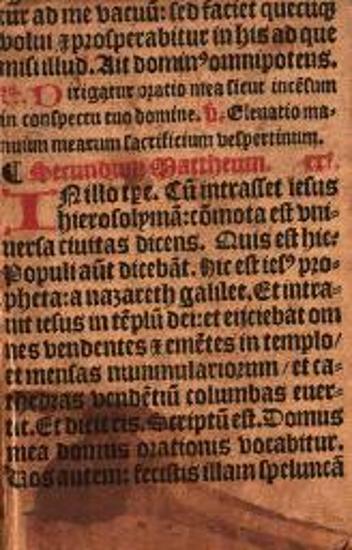 tur ad me vacuū: sed faciet quecūqꝫ
volui ⁊ prosperabitur in his ad que
misi illud. Ait domin⁹ omnipotens.
Dirigatur oratio mea sicut incēsum
in conspectu tuo domine. ℣. Eleuatio ma-
nuum mearum sacrificium vespertinum.
¶ Secundum Mattheum. xxj.
IN illo tꝑe. Cū intrasset iesus
hierosolymā: cōmota est vni-
uersa ciuitas dicens. Quis est hic?
Populi aūt dicebāt. Hic est ies⁹ pro-
pheta: a nazareth galilee. Et intra-
uit iesus in tēplū dei: et eijciebāt om
nes vendentes ⁊ emētes in templo/
et mensas nummulariorum/ et ca-
thedras vendētiū columbas euer-
tit. Et dicit eis. Scriptū est. Domus
mea domus orationis vocabitur.
Uos autem: fecistis illam speluncā